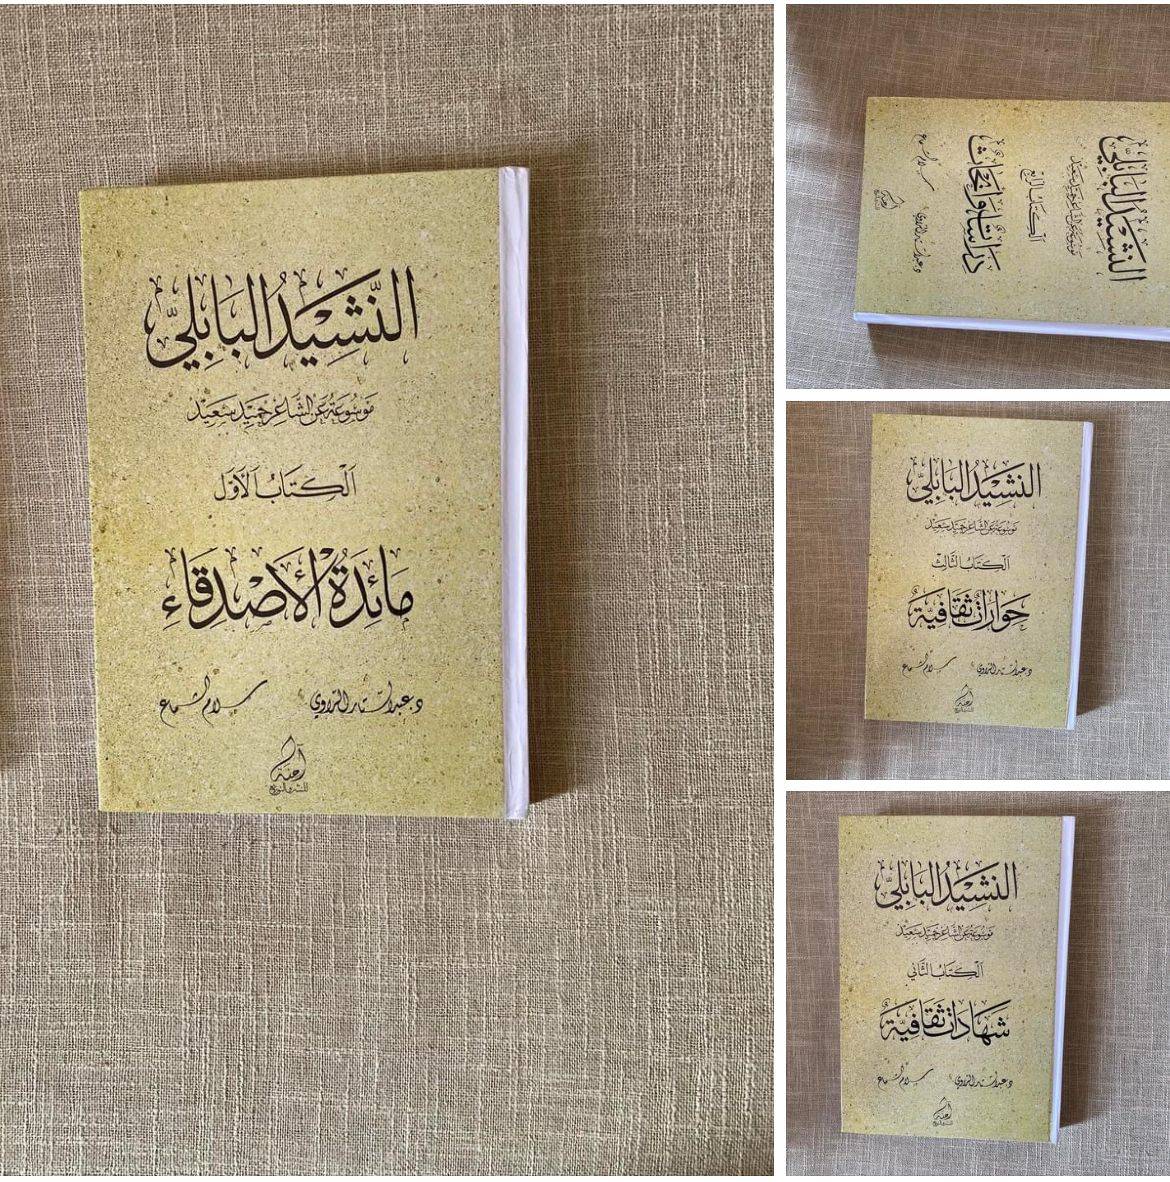 النَّشِيْدُ البَابِليّ
مَوْسُوعَة عَن الشَّاعِر حَمِيْد سَعِيْد
اَلْكِتَابُ الأَوّل
مَائِدَةُ الأَصْدِقَاءِ
د. عبد الستار الراوي سلام الشماع
آمنة
للنشر والتوزيع
النَشِيْدُ البَابِليّ
مَوْسُوعَة عَن الشَّاعِر حَمِيْد سَعِيْد
اَلْكِتَابُ الرَّابِع
دِرَاسَات وَأَبْحَاث
د. عبد الستار الراوي سلام الشماع
آمنة
النَشِيْدُ البَابِليّ
مَوْسُوعَة عَن الشَّاعِر حَمِيْد سَعِيْد
اَلْكِتَابُ الثَّالِث
حِوَارَاتٌ ثَقَافِيَةٌ
د. عبد الستار الراوي سلام الشماع
آمنة
للنشر والتوزيع
النَشِيْدُ البَابِليّ
مَوْسُوعَة عَن الشَّاعِر حَمِيْد سَعِيْد
اَلْكِتَابُ الثَّاني
شَهَادَاتٌ ثَقَافِيَّةٌ
د. عبد الستار الراوي سلام الشماع
آمنة
للنشر والتوزيع